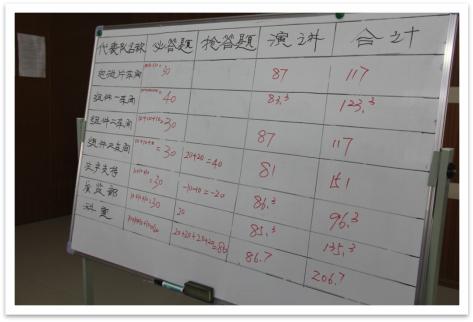 代表队名称 必答题 抢答题 演讲 合计
电池片车间 =30 87 117
组件一车间 =40 83.3 123.3
组件二车间 10+10+10=30 87 117
组件三车间 =30 20+20=40 81 151
=30 -10-10=-20 86.3 96.3
质监部 =30 20 85.3 135.3
20+20+20+20=80 86.7 206.7